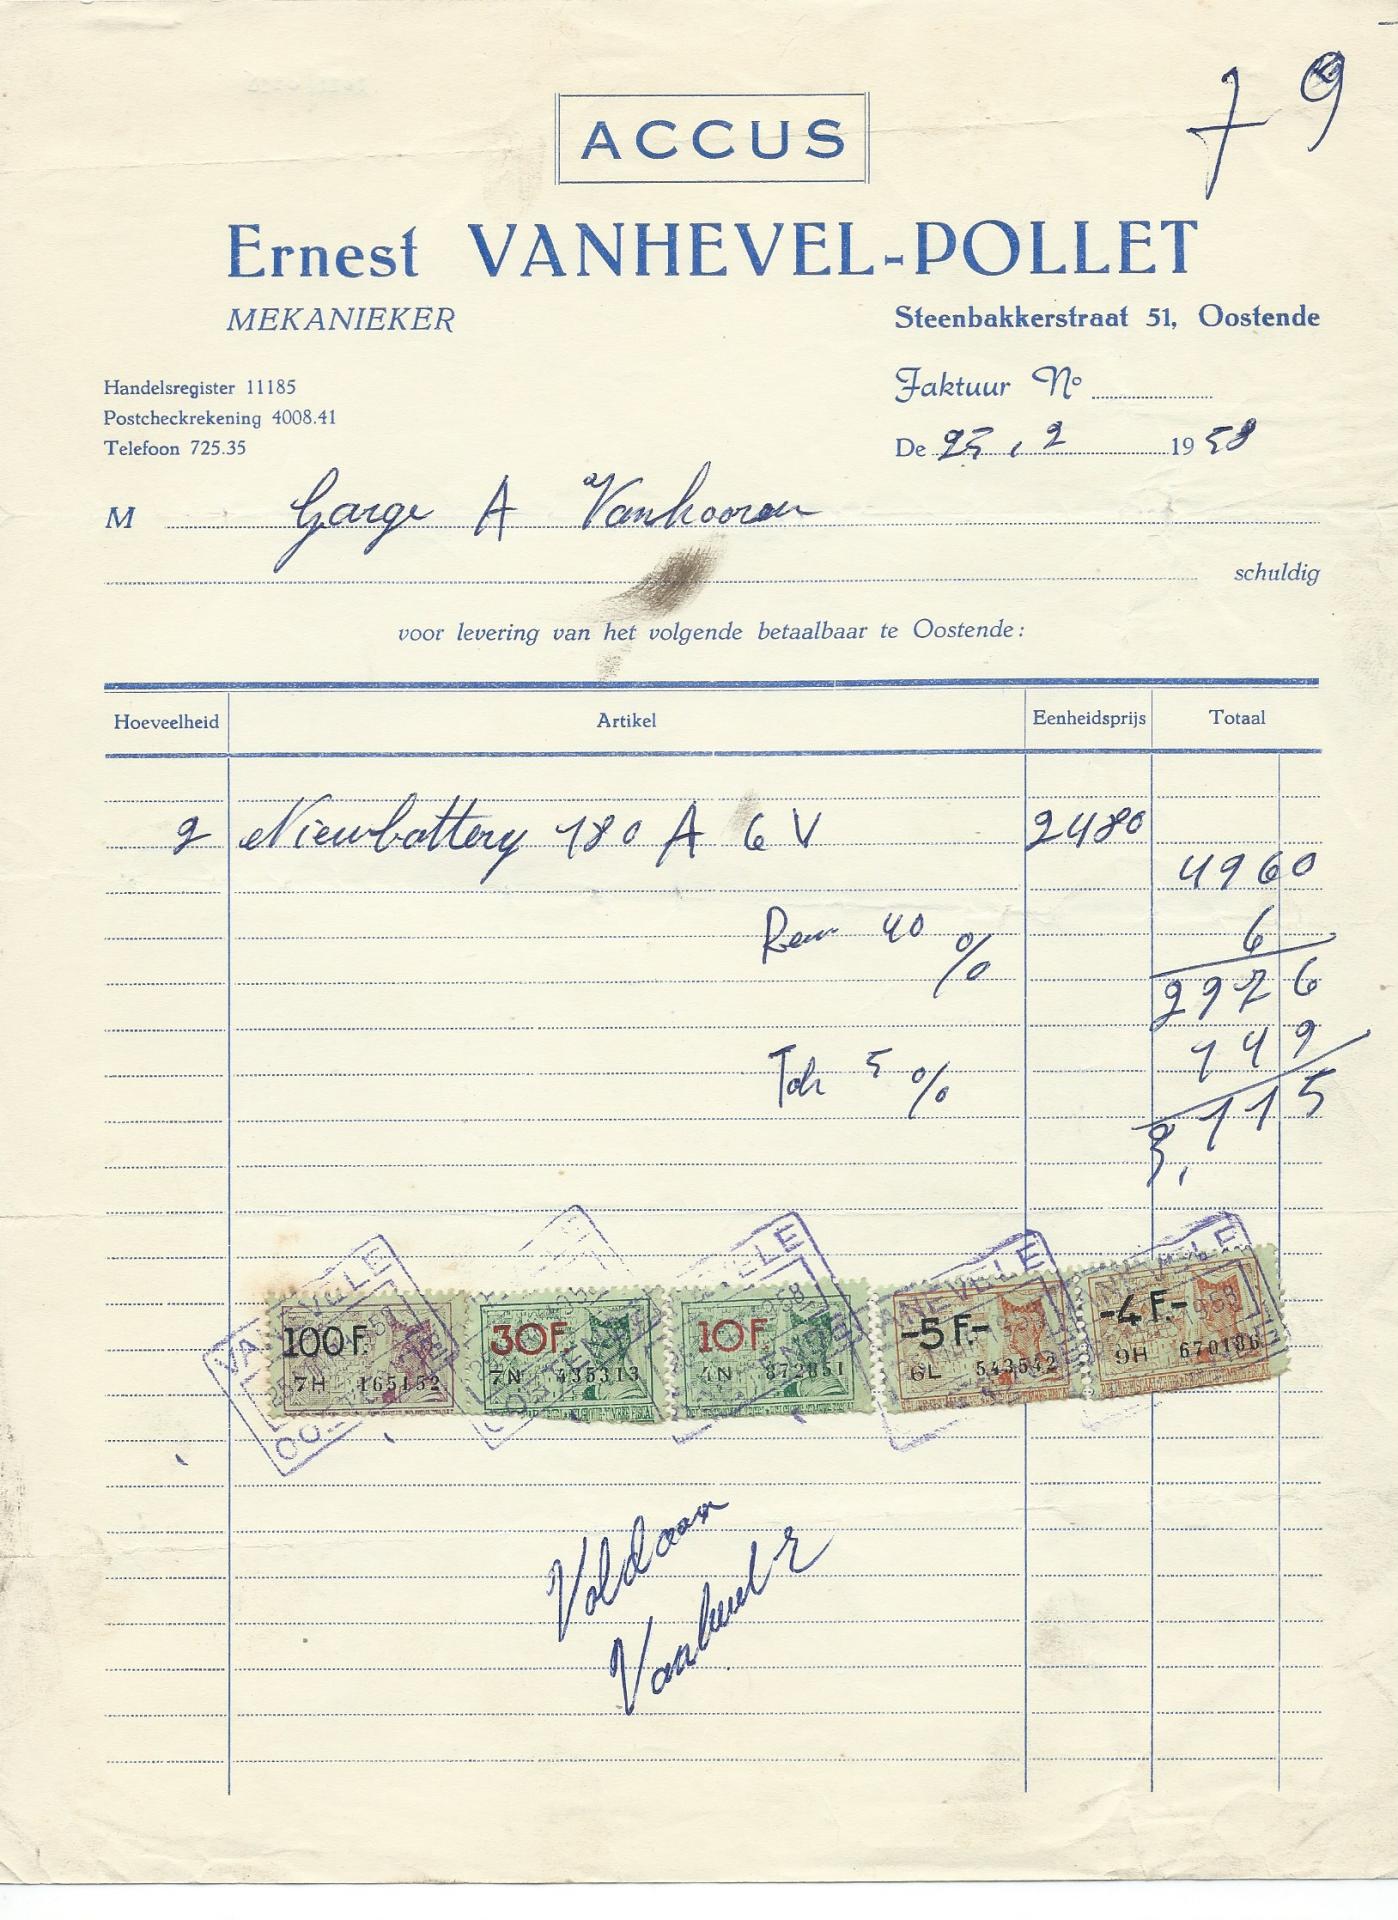 7 9
ACCUS
Ernest VANHEVEL-POLLET
MEKANIEKER
Steenbakkerstraat 51, Oostende
Handelsregister 11185
Postcheckrekening 4008.41
Telefoon 725.35
Faktuur No
De 25.2 1958
M Garge A Vanhooren
schuldig
voor levering van het volgende betaalbaar te Oostende:
Hoeveelheid Artikel Eenheidsprijs Totaal
2 Nieuwbattery 180 A 6 V 2480
4960
40 % 6
2976
5 % 149
3,115
100 F. 7H 165152
30 F. 7N 435313
10 F. 872851
-5 F.- 6L 543542
-4 F.- 9H 670186
Voldaan